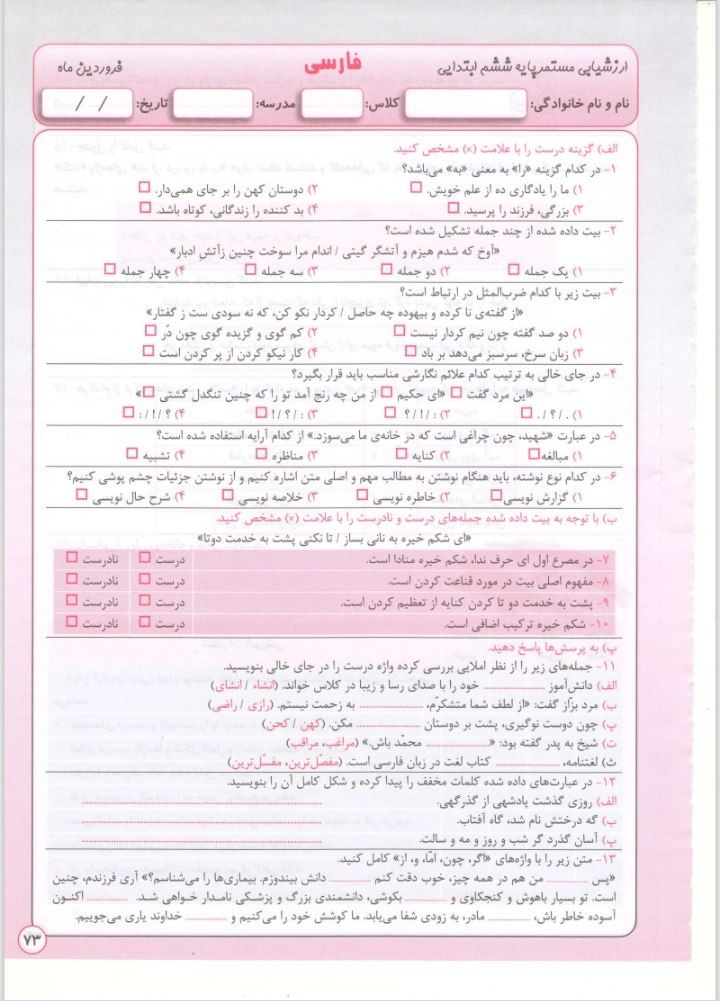 ارزشیابی مستمر پایه ششم ابتدایی فارسی فروردین ماه
نام و نام خانوادگی: کلاس: مدرسه: تاریخ: / /
الف) گزینه درست را با علامت (×) مشخص کنید.
۱- در کدام گزینه «را» به معنی «به» می‌باشد؟
۱) ما را یادگاری ده از علم خویش. ۲) دوستان کهن را بر جای همی‌دار.
۳) بزرگی، فرزند را پرسید. ۴) بد کننده را زندگانی، کوتاه باشد.
۲- بیت داده شده از چند جمله تشکیل شده است؟
«آوخ که شدم هیزم و آتشگر گیتی / اندام مرا سوخت چنین زآتشِ ادبار»
۱) یک جمله ۲) دو جمله ۳) سه جمله ۴) چهار جمله
۳- بیت زیر با کدام ضرب‌المثل در ارتباط است؟
«از گفته‌ی نا کرده و بیهوده چه حاصل / کردار نکو کن، که نه سودی ست ز گفتار»
۱) دو صد گفته چون نیم کردار نیست ۲) کم گوی و گزیده گوی چون دُر
۳) زبان سرخ، سرسبز می‌دهد بر باد ۴) کار نیکو کردن از پر کردن است
۴- در جای خالی به ترتیب کدام علائم نگارشی مناسب باید قرار بگیرد؟
«این مرد گفت «ای حکیم از من چه رنج آمد تو را که چنین تنگدل گشتی »
۱) ./؟/. ۲) :/!/؟ ۳) :/؟/! ۴) ؟/!/:
۵- در عبارت «شهید، چون چراغی است که در خانه‌ی ما می‌سوزد.» از کدام آرایه استفاده شده است؟
۱) مبالغه ۲) کنایه ۳) مناظره ۴) تشبیه
۶- در کدام نوع نوشته، باید هنگام نوشتن به مطالب مهم و اصلی متن اشاره کنیم و از نوشتن جزئیات چشم پوشی کنیم؟
۱) گزارش نویسی ۲) خاطره نویسی ۳) خلاصه نویسی ۴) شرح حال نویسی
ب) با توجه به بیت داده شده جمله‌های درست و نادرست را با علامت (×) مشخص کنید.
«ای شکم خیره به نانی بساز / تا نکنی پشت به خدمت دوتا»
۷- در مصرع اول ای حرف ندا، شکم خیره منادا است. درست نادرست
۸- مفهوم اصلی بیت در مورد قناعت کردن است. درست نادرست
۹- پشت به خدمت دو تا کردن کنایه از تعظیم کردن است. درست نادرست
۱۰- شکم خیره ترکیب اضافی است. درست نادرست
پ) به پرسش‌ها پاسخ دهید.
۱۱- جمله‌های زیر را از نظر املایی بررسی کرده واژه درست را در جای خالی بنویسید.
الف) دانش‌آموز .................. خود را با صدای رسا و زیبا در کلاس خواند. (انشاء / انشای)
ب) مرد بزّاز گفت: «از لطف شما متشکرّم، .................. به زحمت نیستم. (رازی / راضی)
پ) چون دوست نوگیری، پشت بر دوستان .................. مکن. (کهن / کحن)
ت) شیخ به پدر گفته بود: «.................. محمّد باش.» (مراغب، مراقب)
ث) لغتنامه، .................. کتاب لغت در زبان فارسی است. (مفصّل‌ترین، مفسّل‌ترین)
۱۲- در عبارت‌های داده شده کلمات مخفف را پیدا کرده و شکل کامل آن را بنویسید.
الف) روزی گذشت پادشهی از گذرگهی. ..................
ب) گه درختش نام شد، گاه آفتاب. ..................
پ) آسان گذرد گر شب و روز و مه و سالت. ..................
۱۳- متن زیر را با واژه‌های «اگر، چون، امّا، و، از» کامل کنید.
«پس .................. من هم در همه چیز، خوب دقت کنم .................. دانش بیندوزم. بیماری‌ها را می‌شناسم؟» آری فرزندم، چنین
است. تو بسیار باهوش و کنجکاوی و .................. بکوشی، دانشمندی بزرگ و پزشکی نامدار خواهی شد. .................. اکنون
آسوده خاطر باش، .................. مادر، به زودی شفا می‌یابد. ما کوشش خود را می‌کنیم و .................. خداوند یاری می‌جوییم.
۷۳